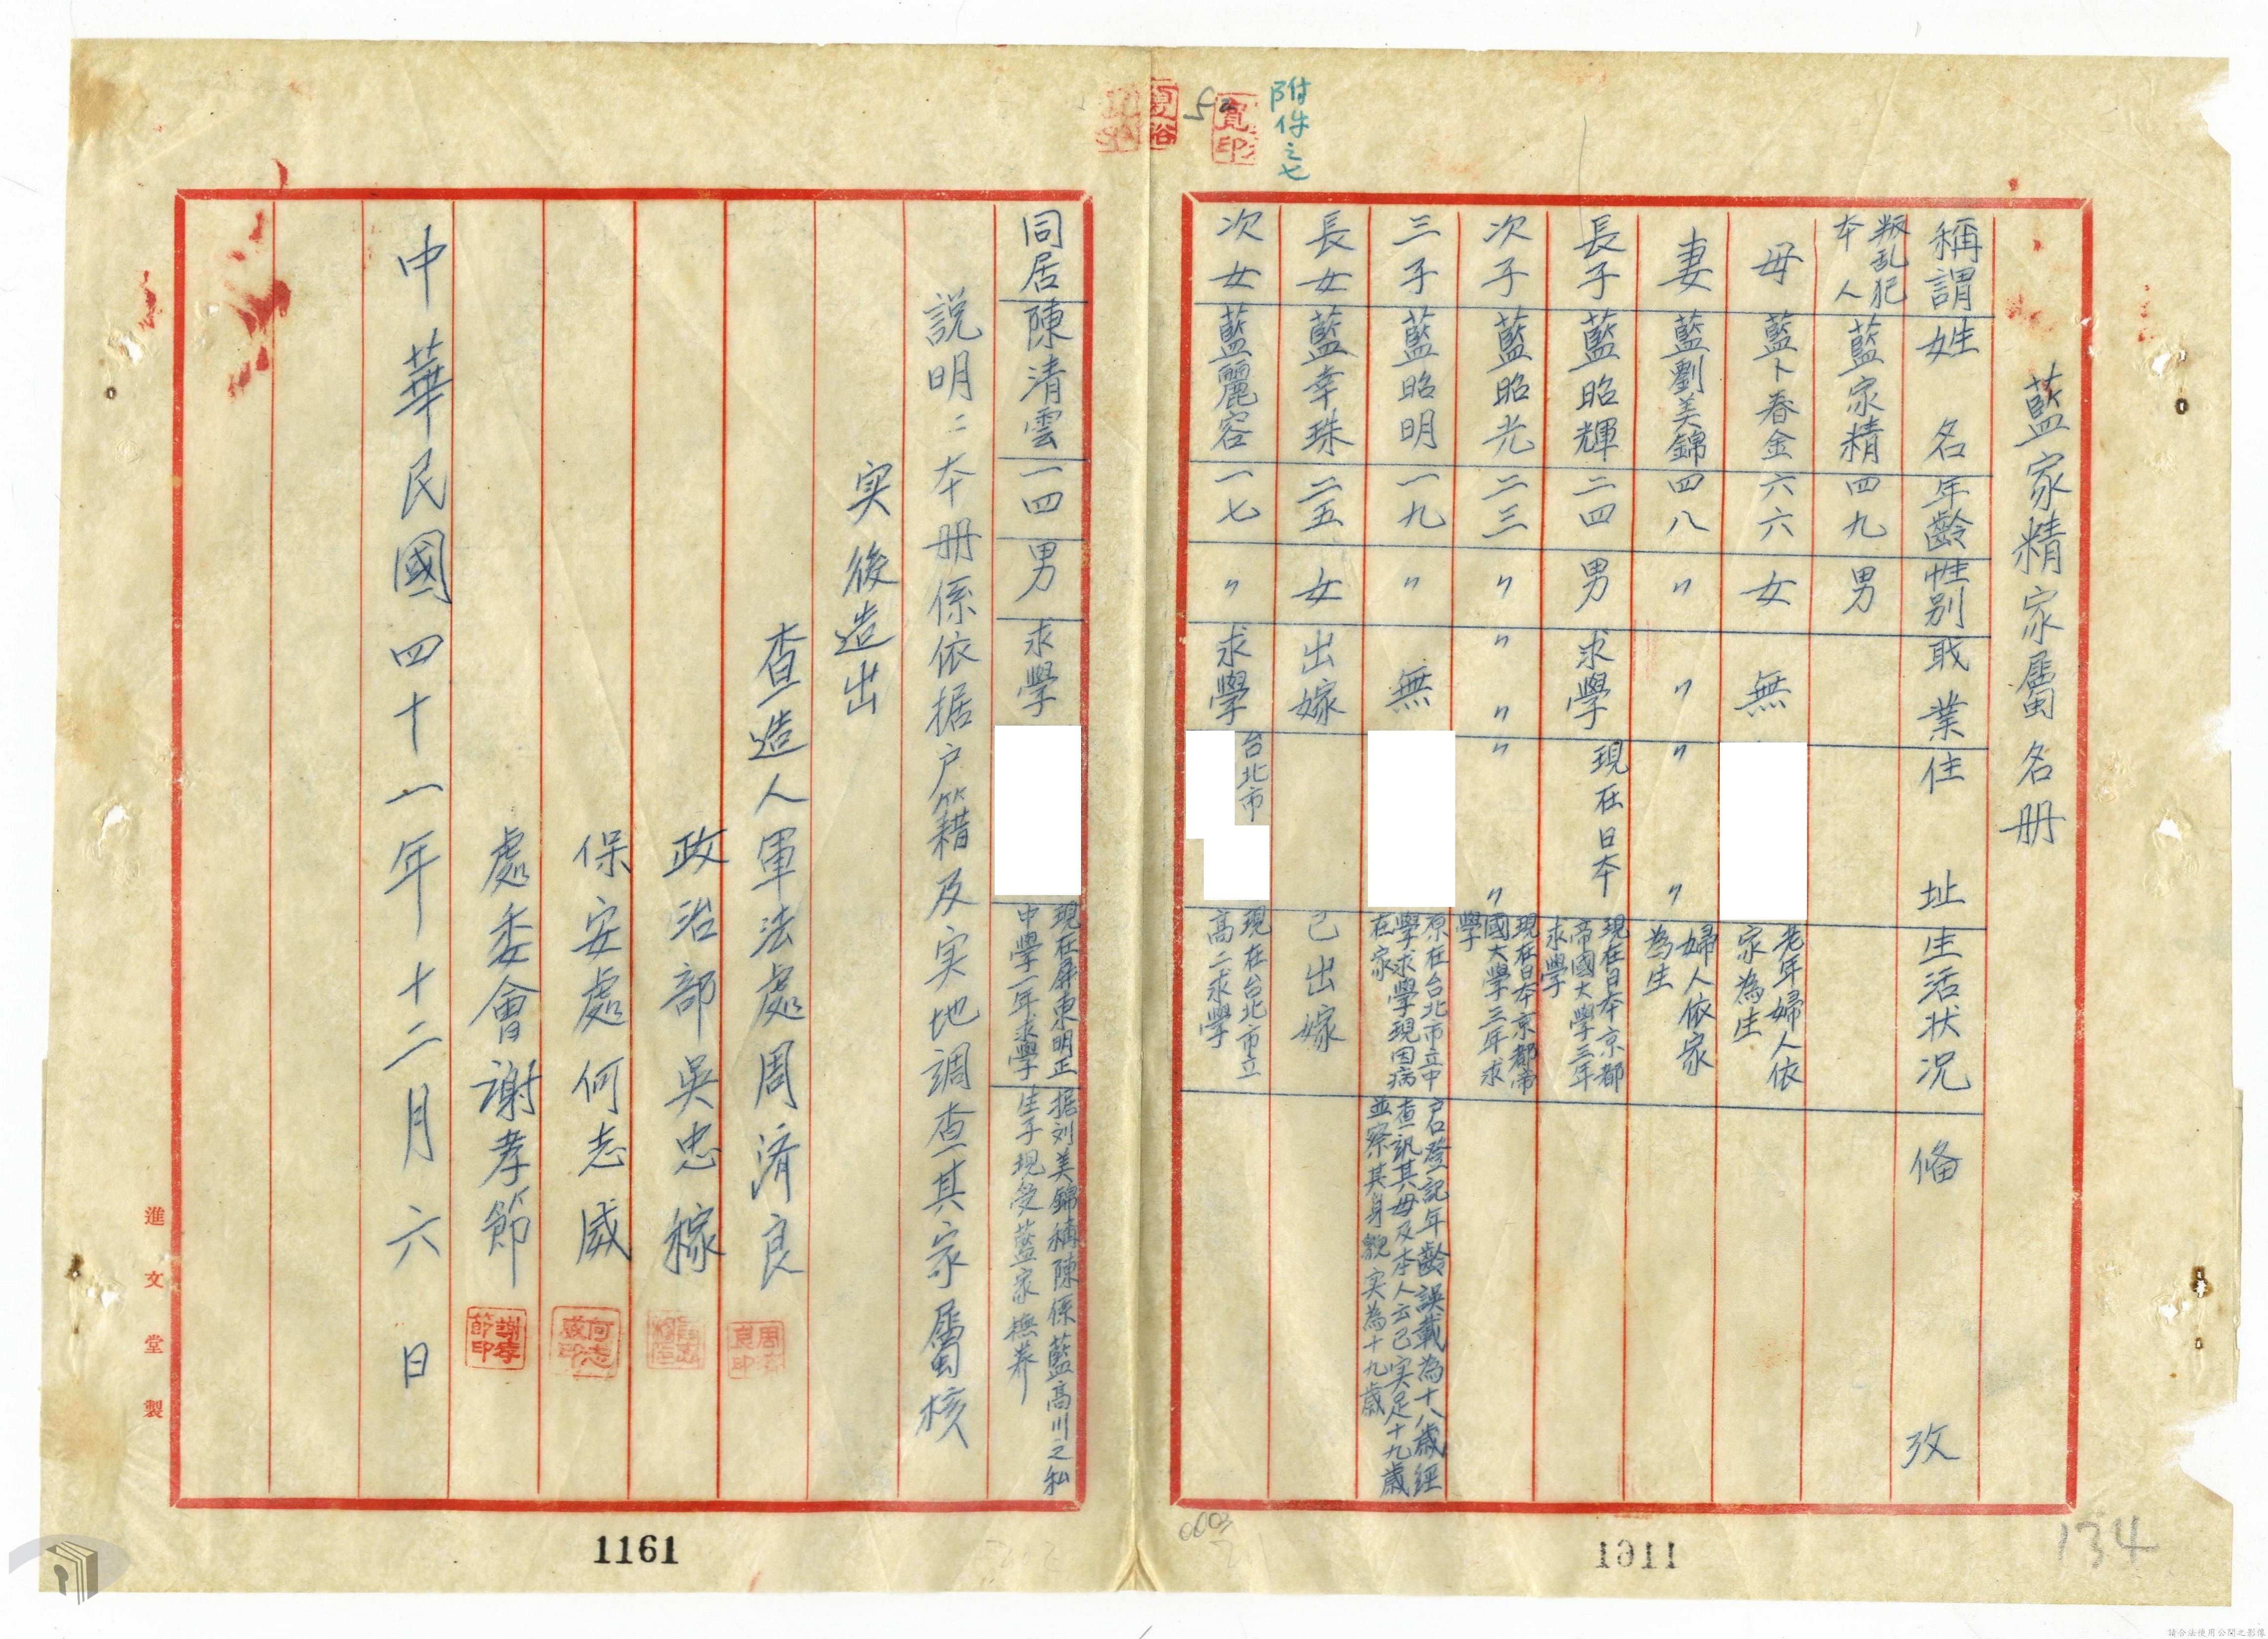 附件之七
藍家精家屬名册
稱謂 姓名 年齡 性別 职業 住址 生活狀況 俻攷
叛乱犯本人 藍家精 四九 男
母 藍卜春金 六六 女 無 老年婦人依家為生
妻 藍劉美錦 四八 〃 〃 〃 〃 婦人依家為生
長子 藍昭輝 二四 男 求學 現在日本 現在日本京都帝國大學三年求學
次子 藍昭光 二三 〃 〃 〃 〃 〃 現在日本京都帝國大學三年求學
三子 藍昭明 一九 〃 無 原在台北市立中學求學現因病在家 户口登記年齡誤載為十八歲經查訊其母及本人云已实足十九歲並察其身貌实為十九歲
長女 藍幸珠 二五 女 出嫁 已出嫁
次女 藍麗容 一七 〃 求學 台北市 現在台北市立高二求學
同居 陳清雲 一四 男 求學 現在屏東明正中學一年求學 据刘美錦稱陳係藍高川之私生子現受藍家撫养
説明：本册係依据户籍及实地調查其家屬核
实後造出
查造人軍法處周濟良
政治部吳忠稼
保安處何志威
處委會謝孝節
謝孝節印
何志威印
中華民國四十一年十二月六日
進文堂製
1161
1161
134
請合法使用公開之影像